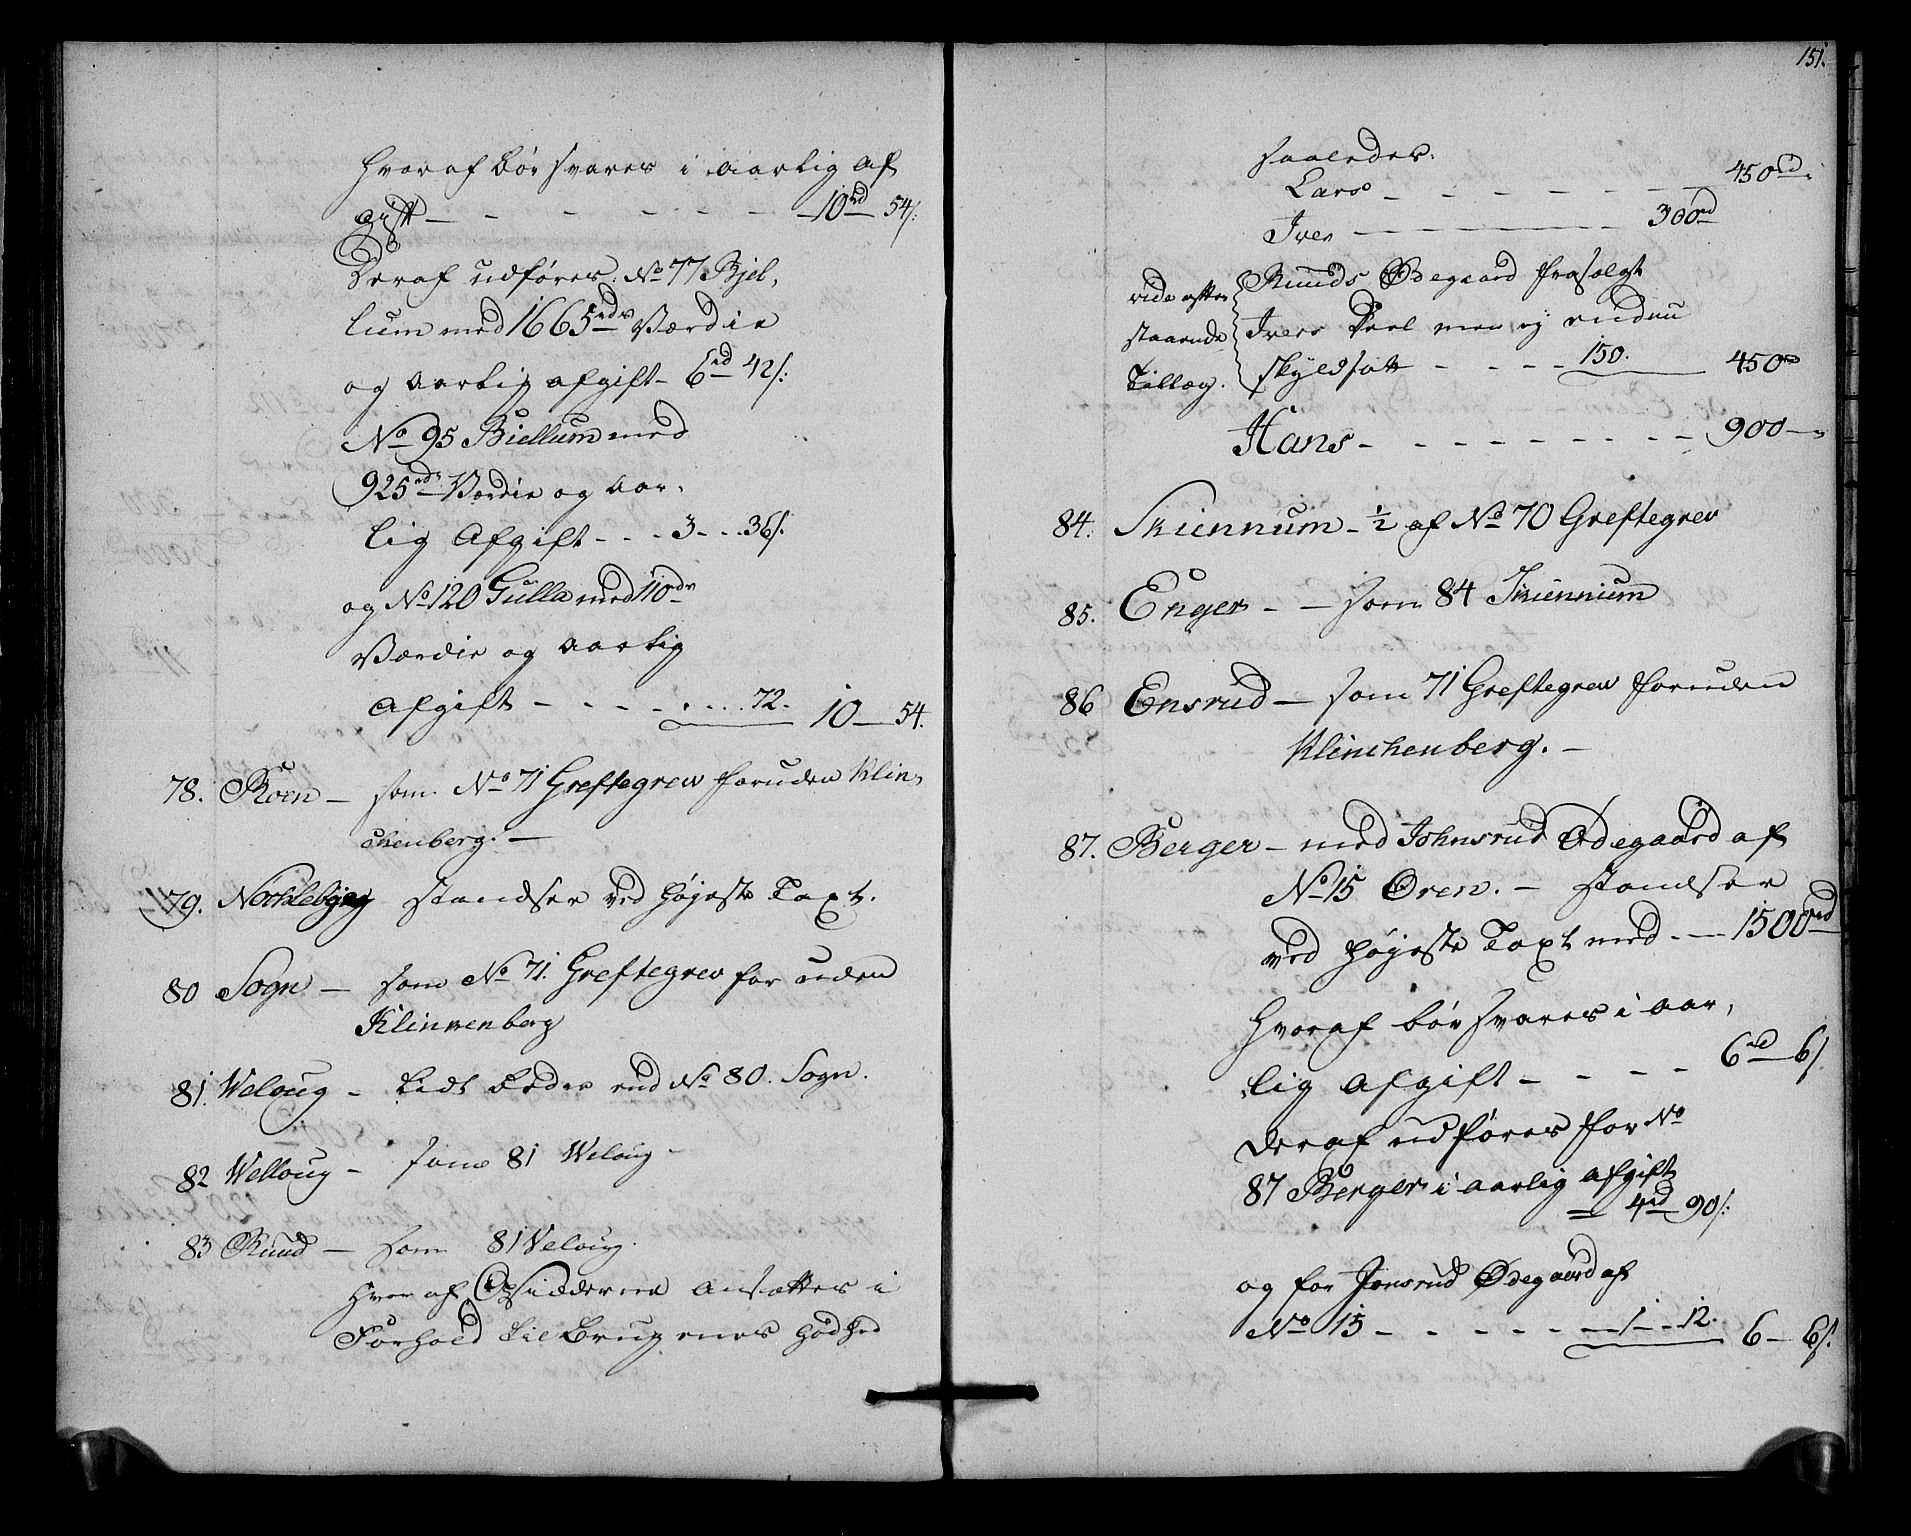 hvoraf bör svares i aarlig af
gift - - - - - - 10rd 54/:
Deraf udföres No 77 Bjel,
lum med 1665rdr Værdie
og aarlig afgift - 6rd 42/:
No 95 Biellum med
925rdr Værdie og Aar,
lig Afgift - - - 3 - - 36/.
og No 120 Gulla med 110rdr
Værdie og aarlig
Afgift - - - - - - - 72. 10 - 54.
78. Roen - som No 71 Greftegrev foruden Klin,
chenberg. -
79. Nochlebye standser ved höjeste Taxt.
80 Sogn - som No 71. Greftegrev for uden
Klinkenberg
81. Weloug - lidt bedre end No 80. Sogn.
82 Welloug - som 81 Weloug -
83 Ruud - som 81 Veloug.
hvoraf Opsidderne Ansættes i
Forhold til Brugenes Godhed
151.
saaledes.
Lars - - - - - - 450rd.
Iver - - - - - - 300rd
vide efter
staaende
Tillæg.
Ruuds Ødegaard frasolgt
Ivers Deel men ej endnu
skyldsatt - - - - 150. 450rd
Hans - - - - - - - - 900 -
84. Skiennum - 1/2 af No 70 Greftegrev
85. Enger - - som 84 Skiennum
86 Ensrud - som 71 Greftegrev foruden
Klinchenberg. -
87. Berger - med Johnsrud Ødegaard af
No 15 Øren. - standser
ved höjeste Taxt med. - 1500rd
hvoraf bör svares i aar,
lig Afgift - - - - 6rd 6/
deraf udföres for No
87 Berger i aarlig afgift
4rd 90/:
og for Jonsrud Ødegaard af
No 15 - - - - - - 1 - 12. 6 - 6/.